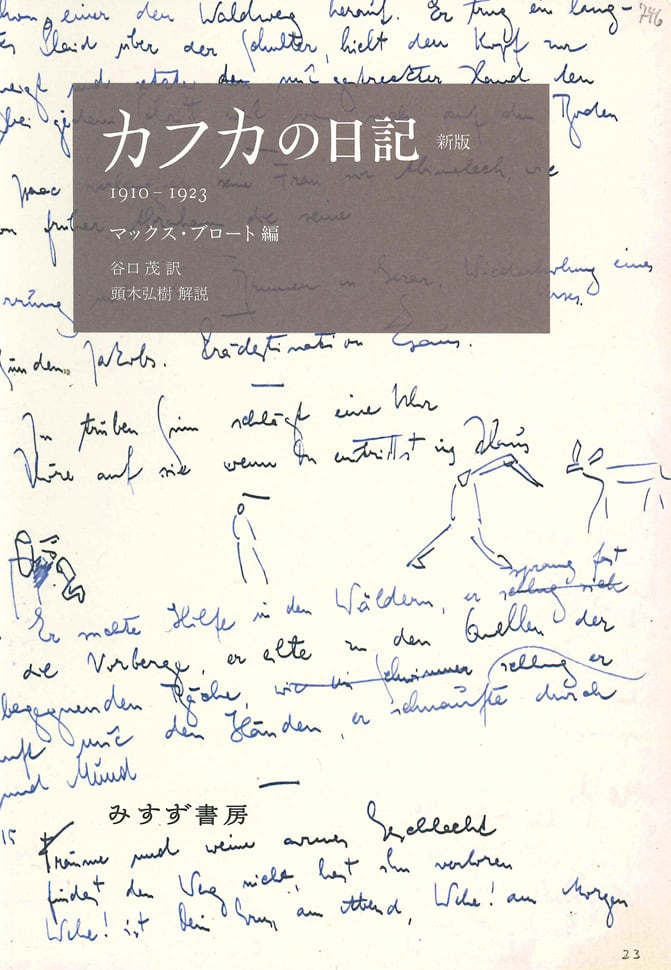 einer den Waldweg herauf. Er trug ein lang-
746
Plaid über der Schulter, hielt den Kopf zur
mit gestreckter Hand den
bei jedem Boden
カフカの日記 新版
1910–1923
マックス・ブロート 編
谷口 茂 訳
頭木弘樹 解説
seine Frau vor Abimelech, wie
früher Abraham die seine
in Gerar. Wiederholung eines
Verses.
Jakobs. Prädestination Esaus.
In trüben Sinn schlägt eine Uhr
Höre auf sie wenn Du eintrittst ins Haus
sprang fast
Er suchte Hilfe in den Wäldern, er schlug sich
die Vorberge, er eilte zu den Quellen der
begegnenden Bäche, wie ein Schwimmer schlug er
mit den Händen, er schnaufte durch
und Mund
みすず書房
15
Träume und weine armes Geschlecht
findest den Weg nicht, hast ihn verloren
Wehe! ist Dein Gruss am Abend, Wehe! am Morgen
23